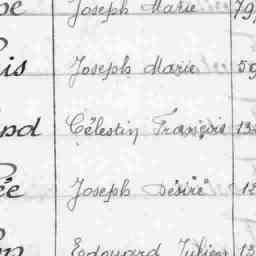 Joseph Marie 79
is Joseph Marie 59
nd Célestin François 13
ée Joseph Désiré 18
Edouard Julien 13